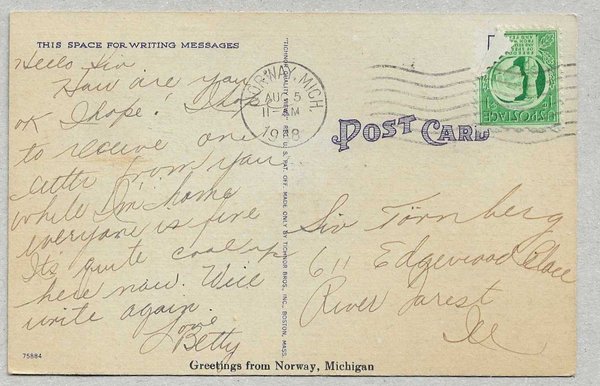 THIS SPACE FOR WRITING MESSAGES
Hello Siv
How are you
OK I hope! I hope
to receive one
letter from you
while I'm home
everyone is fine
It's quite cool up
here now. Will
write again.
Love
Betty
75884
"TICHNOR QUALITY VIEWS," REG. U. S. PAT. OFF. MADE ONLY BY TICHNOR BROS., INC., BOSTON, MASS.
NORWAY, MICH.
AUG 5
11 - AM
POST CARD
U.S. POSTAGE
1¢
Siv Törnberg
611 Edgewood Place
River Forest
Ill
Greetings from Norway, Michigan